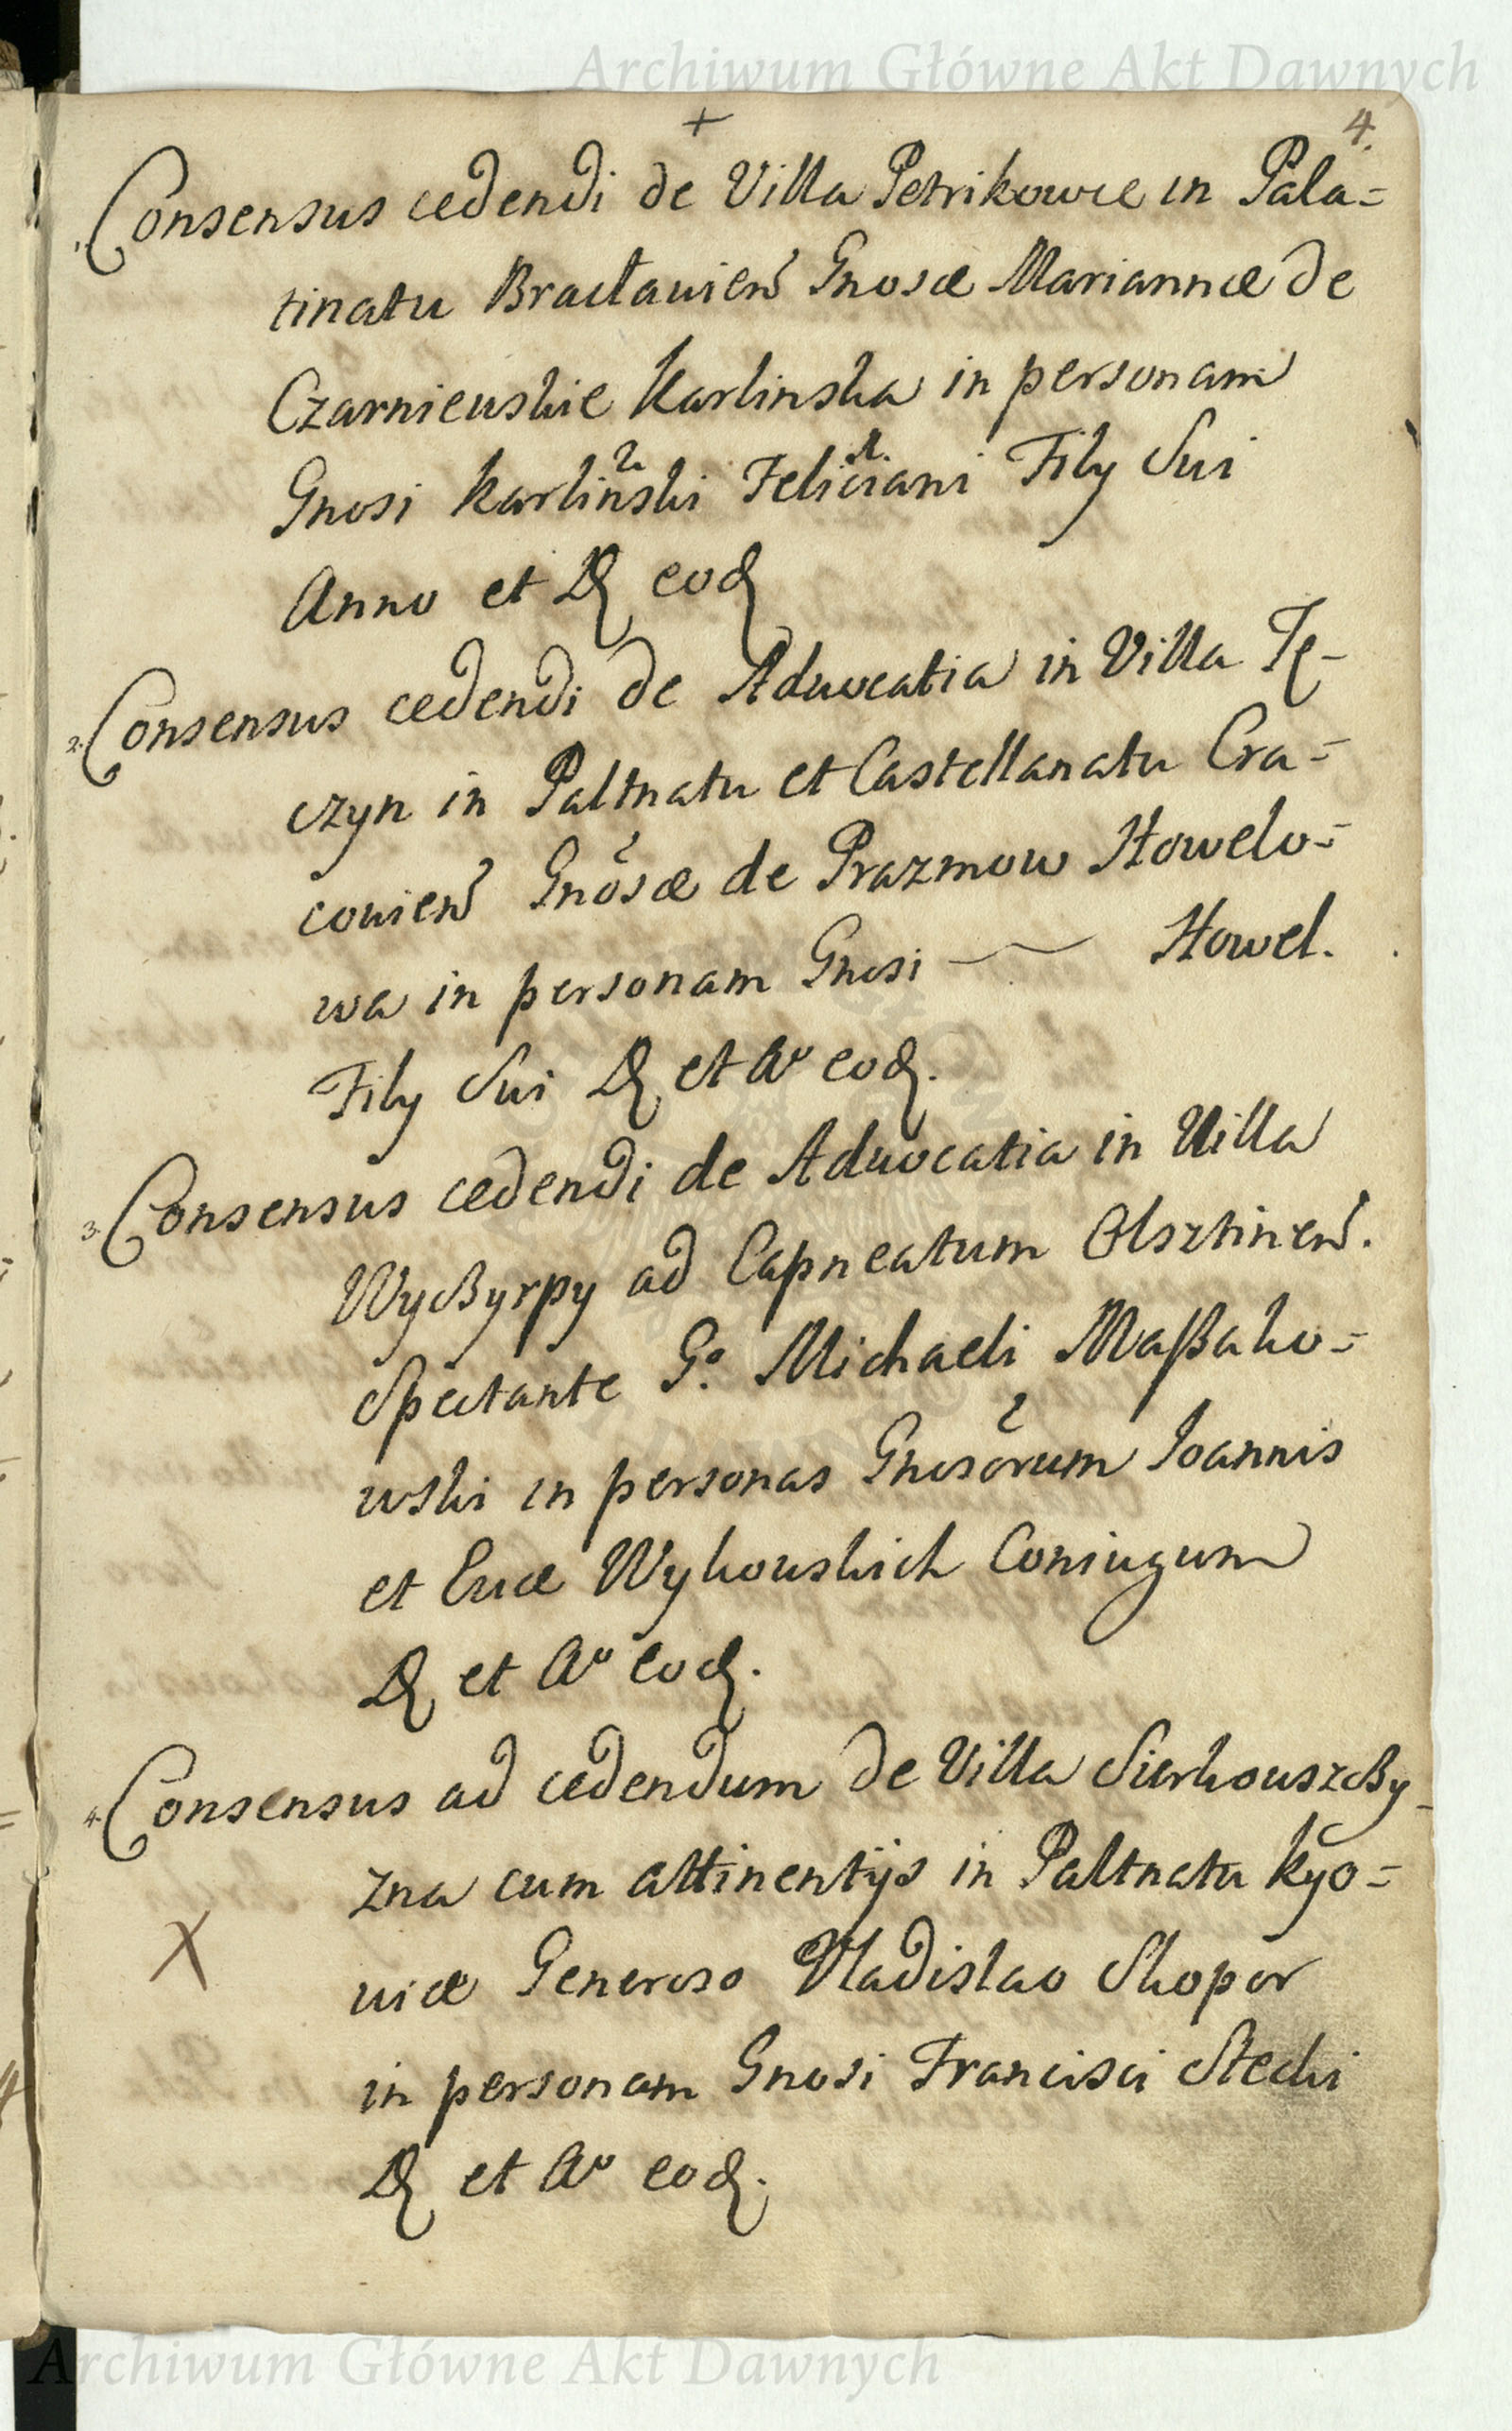 Archiwum Główne Akt Dawnych
+ 4.
1. Consensus cedendi de Villa Petrikowce in Pala=
tinatu Bracłauien Gnosæ Mariannæ de
Czarnieuskie Karlinska in personam
2. 1.
Gnosi Karlinski Feliciani Filÿ Sui
Anno et D eod
2. Consensus cedendi de Aduocatia in Villa Tę-
czyn in Paltnatu et Castellanatu Cra=
couien Gnosæ de Prazmow Howelo=
wa in personam Gnosi — Howel.
Filÿ Sui D et Aº eod.
3. Consensus cedendi de Aduocatia in Villa
ad Capneatum Olsztinen.
Spectante Gº. Michaeli Maßako=
wski in personas Gnosorum Joannis
et Euæ Wyhouskich Coniugum
D et Aº eod.
4. Consensus ad cedendum de Villa
zna cum attinentijs in Paltnatu Kyo=
uiæ Generoso Vladislao Skopor
in personam Gnosi Francisci Stecki
D et Aº eod.
X
Archiwum Główne Akt Dawnych